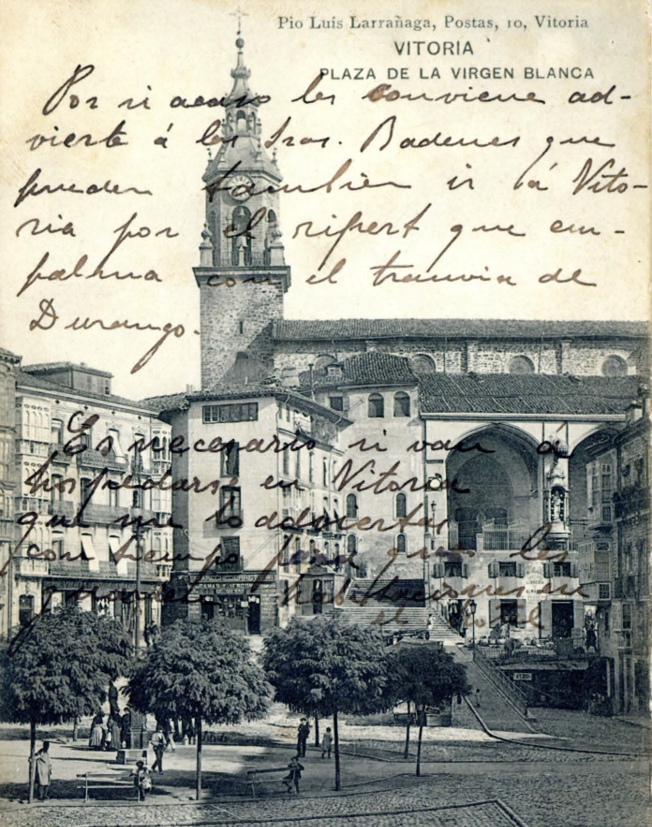 Pio Luís Larrañaga, Postas, 10, Vitoria
VITORIA
PLAZA DE LA VIRGEN BLANCA
Por si acaso les conviene ad-
vierte á los Sres. Badenes que
pueden tambien ir á Vito-
ria por el ripert que em-
palma con el tranvia de
Durango.
Es necesario si van á
hospedarse en Vitoria
que me lo adviertas
con tiempo para que les
guarden habitaciones
en el Hotel